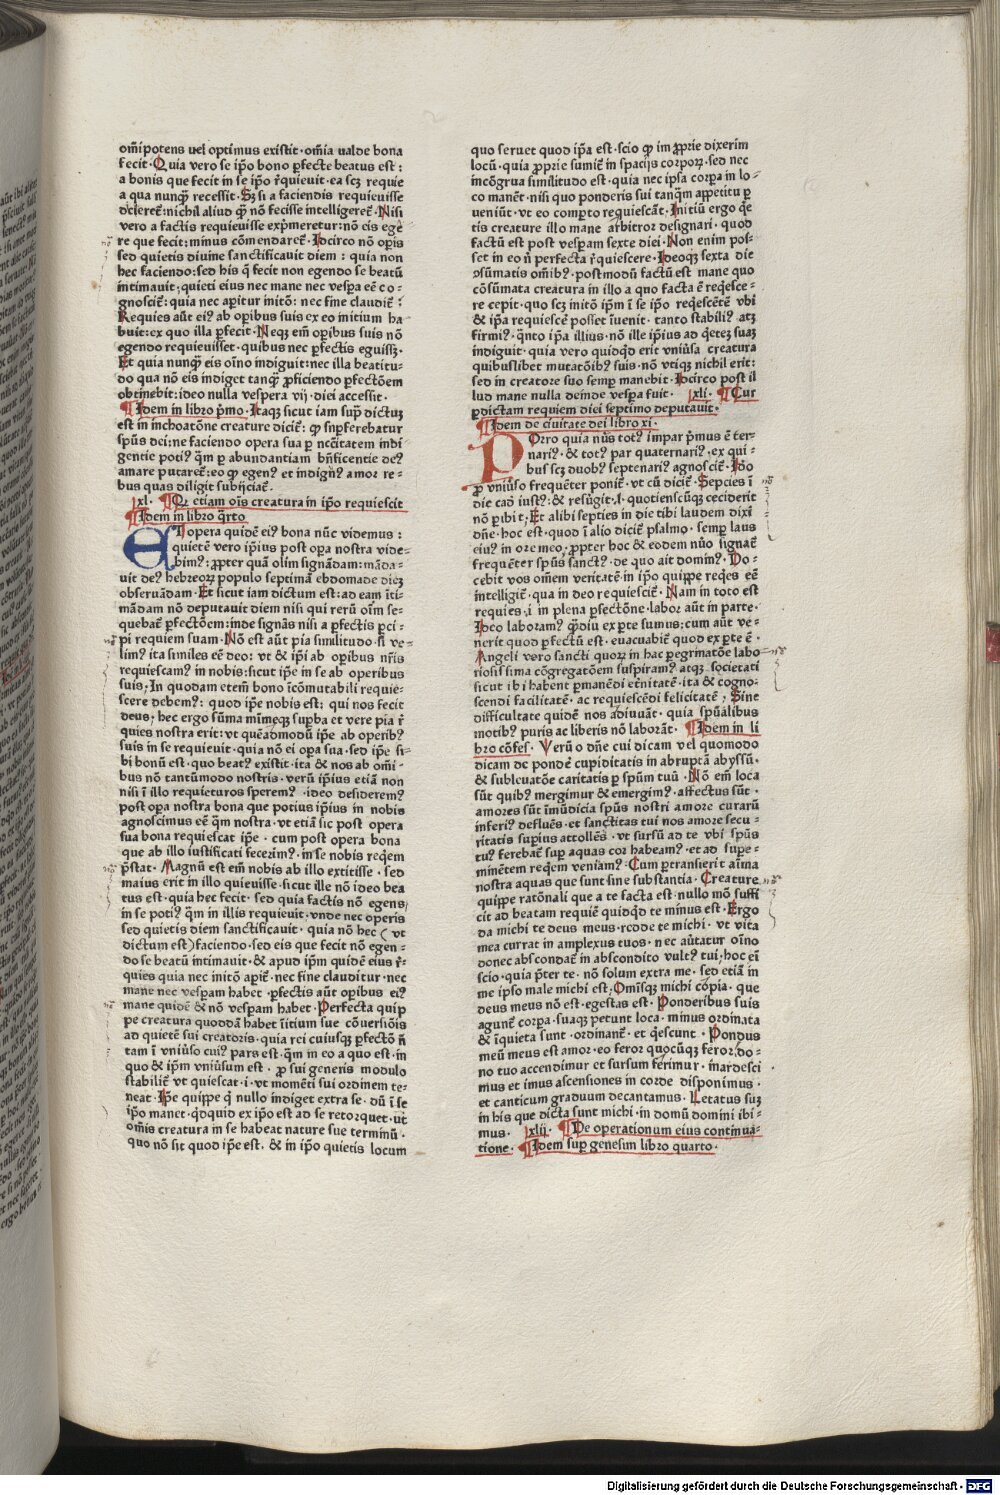 om̄ipotens uel optimus existit · om̄ia ualde bona
fecit · Quia vero se ip̄o bono ꝑfecte beatus est :
a bonis que fecit in se ip̄o r̄quieuit · ea scꝫ requie
a qua nunqꝫ recessit · Sꝫ si a faciendis requieuisse
diceret̄ : nichil aliud qꝫ nō fecisse intelligeret̄ · Nisi
vero a factis requieuisse exp̄meretur : nō eis ege
re que fecit : minus cōmendaret̄ · Idcirco nō oꝑis
sed quietis diuine sanctificauit diem : quia non
hec faciendo : sed his q̄ fecit non egendo se beatū
intimauit ; quieti eius nec mane nec vesꝑa eē co-
gnoscit̄ : quia nec aꝑitur initō : nec fine claudit̄ :
Requies aūt eiꝰ ab oꝑibus suis ex eo initium ha
buit : ex quo illa ꝑfecit · Neqꝫ em̄ oꝑibus suis nō
egendo requieuisset · quibus nec ꝑfectis eguissꝫ ·
Et quia nunqꝫ eis oīno indiguit : nec illa beatitu-
do qua nō eis indiget tanqꝫ ꝓficiendo ꝑfectōem
obtinebit : ideo nulla vespera vij · diei accessit ·
¶ Idem in libro p̄mo · Itaqꝫ sicut iam suꝑ dictuꝫ
est in inchoatōne creature dicit̄ : ꝙ suꝑferebatur
spūs dei : ne faciendo opera sua ꝑ nc̄citatem indi
gentie poti9 q̄m ꝑ abundantiam bn̄ficentie deꝰ
amare putaret̄ : eo ꝙ egenꝰ et indignꝰ amor re-
bus quas diligit subijciat̄ ·
xl · ¶ Qꝛ etiam oīs creatura in ip̄o requiescit
¶ Idem in libro q̄rto
ET opera quidē eiꝰ bona nūc videmus :
quietē vero ip̄ius post oꝑa nostra vide-
bimꝰ : ꝓpter quā olim signādam : māda-
uit deꝰ hebreoꝝ populo septimā ebdomade dieꝫ
obseruādam · Et sicut iam dictum est : ad eam īti-
mādam nō deputauit diem nisi qui rerū oīm se-
quebat̄ ꝑfectōem : inde signās nisi a ꝑfectis ꝑci-
pi requiem suam · Nō est aūt pia similitudo · si ve-
limꝰ ita similes eē deo : vt & ip̄i ab oꝑibus nr̄is
requiescamꝰ in nobis : sicut ip̄e in se ab operibus
suis ; In quodam etem̄ bono īcōmutabili requie-
scere debemꝰ : quod ip̄e nobis est : qui nos fecit
deus ; hec ergo sūma mīmeqꝫ suꝑba et vere pia r̄
quies nostra erit : vt quēadmodū ip̄e ab oꝑibꝰ
suis in se requieuit · quia nō ei oꝑa sua · sed ip̄e si-
bi bonū est · quo beatꝰ existit · ita & nos ab om̄i-
bus nō tantūmodo nostris · verū ip̄ius etiā non
nisi ī illo requieturos speremꝰ · ideo desideremꝰ
post oꝑa nostra bona que potius ip̄ius in nobis
agnoscimus eē q̄m nostra · vt etiā sic post opera
sua bona requiescat ip̄e · cum post opera bona
que ab illo iustificati fecerimꝰ · in se nobis req̄em
p̄stat · Magnū est em̄ nobis ab illo extitisse · sed
maius erit in illo quieuisse · sicut ille nō ideo bea
tus est · quia hec fecit · sed quia factis nō egens
in se potiꝰ q̄m in illis requieuit · vnde nec operis
sed quietis diem sanctificauit · quia nō hec ( vt
dictum est ) faciendo · sed eis que fecit nō egen-
do se beatū intimauit · & apud ip̄m quidē eius r̄-
quies quia nec initō aꝑit̄ · nec fine clauditur · nec
mane nec vesꝑam habet · ꝑfectis aūt oꝑibus eiꝰ
mane quidē & nō vesꝑam habet · Perfecta quip
pe creatura quoddā habet īitium sue cōuersiōis
ad quietē sui creatoris · quia rei cuiusqꝫ ꝑfectō ñ
tam ī vniūso cuiꝰ pars est · q̄m in eo a quo est · in
quo & ip̄m vniūsum est · ꝓ sui generis modulo
stabilit̄ vt quiescat · i · vt momēti sui ordinem te-
neat · Ip̄e quippe q̄ nullo indiget extra se · dū ī se
ip̄o manet · q̄dquid ex ip̄o est ad se retorquet · ut
om̄is creatura in se habeat nature sue terminū ·
quo nō sit quod ip̄e est · & in ip̄o quietis locum
quo seruet quod ip̄a est · scio ꝙ im ꝓprie dixerim
locū · quia ꝓprie sumit̄ in spacijs corꝑoꝝ · sed nec
incōgrua similitudo est · quia nec ipsa corꝑa in lo-
co manēt · nisi quo ponderis sui tanq̄m appetitu ꝑ
veniūt · vt eo comꝑto requiescāt · Initiū ergo q̄e
tis creature illo mane arbitror designari · quod
factū est post vesꝑam sexte diei · Non enim pos-
set in eo ñ ꝑfecta r̄quiescere · Ideoqꝫ sexta die
ꝯsūmatis om̄ibꝰ · postmodū factū est mane quo
cōsūmata creatura in illo a quo facta ē req̄esce-
re cepit · quo scꝫ initō ip̄m ī se ip̄o req̄escētē vbi
& ip̄a requiescē posset īuenit · tanto stabiliꝰ atꝫ
firmiꝰ · q̄nto ip̄a illius · nō ille ip̄ius ad q̄tēꝫ suaꝫ
indiguit · quia vero quidq̄d erit vniūsa creatura
quibuslibet mutatōibꝰ suis · nō vtiqꝫ nichil erit :
sed in creatore suo semꝑ manebit · Idcirco post il
lud mane nulla deinde vesꝑa fuit · xli · ¶ Cur
p̄dictam requiem diei septimo deputauit ·
¶ Idem de ciuitate dei libro xi ·
POrro quia nūs totꝰ impar p̄mus ē ter-
nariꝰ · & totꝰ par quaternariꝰ · ex qui-
bus scꝫ duobꝰ septenariꝰ agnoscit̄ · Ido
ꝓ vniūso frequēter ponit̄ · vt cū dicit̄ · Sepcies ī
die cad̄ iustꝰ : & resūgit · i · quotienscūqꝫ ceciderit
nō ꝑibit ; Et alibi septies in die tibi laudem dixī
dn̄e · hoc est · quod ī alio dicit̄ psalmo · semꝑ laus
eiuꝰ in ore meo ; ꝓpter hoc & eodem nūo signat̄
frequēter spūs sanctꝰ · de quo ait dominꝰ · Do-
cebit vos om̄em veritatē in ip̄o quippe req̄es eē
intelligit̄ · qua in deo requiescit̄ · Nam in toto est
requies · i · in plena ꝑfectōne · labor aūt in parte ·
Ideo laboramꝰ q̄diu ex ꝑte sumus : cum aūt ve-
nerit quod ꝑfectū est · euacuabit̄ quod ex ꝑte ē ·
Angeli vero sancti quoꝝ in hac ꝑegrinatōe labo
riosissima cōgregatōem suspiramꝰ atqꝫ societati
sicut ibi habent ꝑmanēdi et̄nitatē · ita & cogno-
scendi facilitatē · ac requiescēdi felicitatē ; Sine
difficultate quidē nos adiuuāt · quia spūalibus
motibꝰ puris ac liberis nō laborāt · ¶ Idem in li
bro cōfes · Verū o dn̄e cui dicam vel quomodo
dicam de pondē cupiditatis in abruptā abyssū ·
& subleuatōe caritatis ꝑ spūm tuū · Nō em̄ loca
sūt quibꝰ mergimur & emergimꝰ · affectus sūt ·
amores sūt īmūdicia spūs nostri amore curarū
inferiꝰ defluēs · et sanctitas tui nos amore secu-
ritatis suꝑius attollēs · vt sursū ad te vbi spūs
tuꝰ ferebat̄ suꝑ aquas cor habeamꝰ · et ad supe-
minētem req̄em veniamꝰ · Cum ꝑtransierit aīma
nostra aquas que sunt sine substantia · Creature
quippe ratōnali que a te facta est · nullo mō suffi
cit ad beatam requiē quidq̄d te minus est · Ergo
da michi te deus meus · redde te michi · vt vita
mea currat in amplexus tuos · nec au̇tatur oīno
donec abscondat̄ in abscondito vultꝰ tui ; hoc eī
scio · quia p̄ter te · nō solum extra me · sed etiā in
me ipso male michi est ; Om̄isqꝫ michi copia · que
deus meus nō est · egestas est · Ponderibus suis
agunt̄ corꝑa · suaqꝫ petunt loca · minus ordinata
& īquieta sunt · ordinant̄ · et q̄escunt · Pondus
meū meus est amor · eo feror quocūqꝫ feror ; do-
no tuo accendimur et sursum ferimur · inardesci
mus et imus ascensiones in corde disponimus ·
et canticum graduum decantamus · Letatus suꝫ
in his que dicta sunt michi · in domū domini ibi-
mus · xlij · ¶ De operationum eius continua-
tione · ¶ Idem suꝑ genesim libro quarto ·
Digitalisierung gefördert durch die Deutsche Forschungsgemeinschaft - DFG